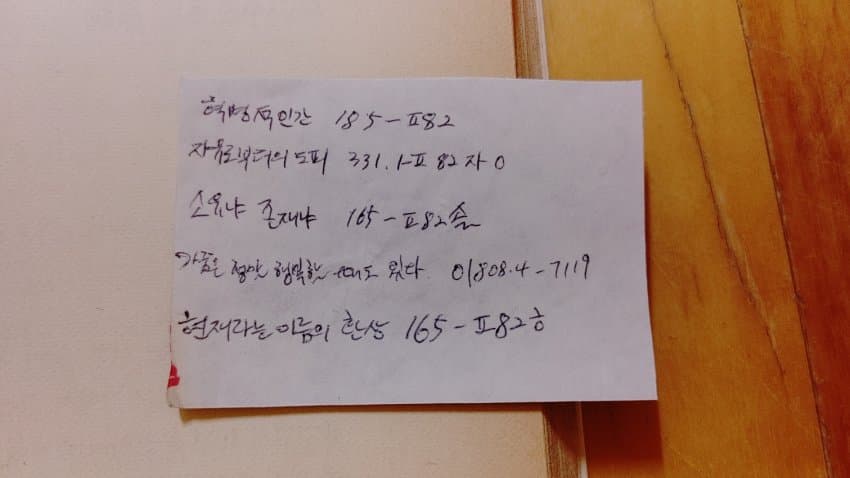 혁명적인간 185-ㅍ82
자유로부터의 도피 331.1-ㅍ82자ㅇ
소유냐 존재냐 165-ㅍ82소
가끔은 행복 도 있다 01808.4-7119
현재라는 이름의 환상 165-ㅍ82ㅎ